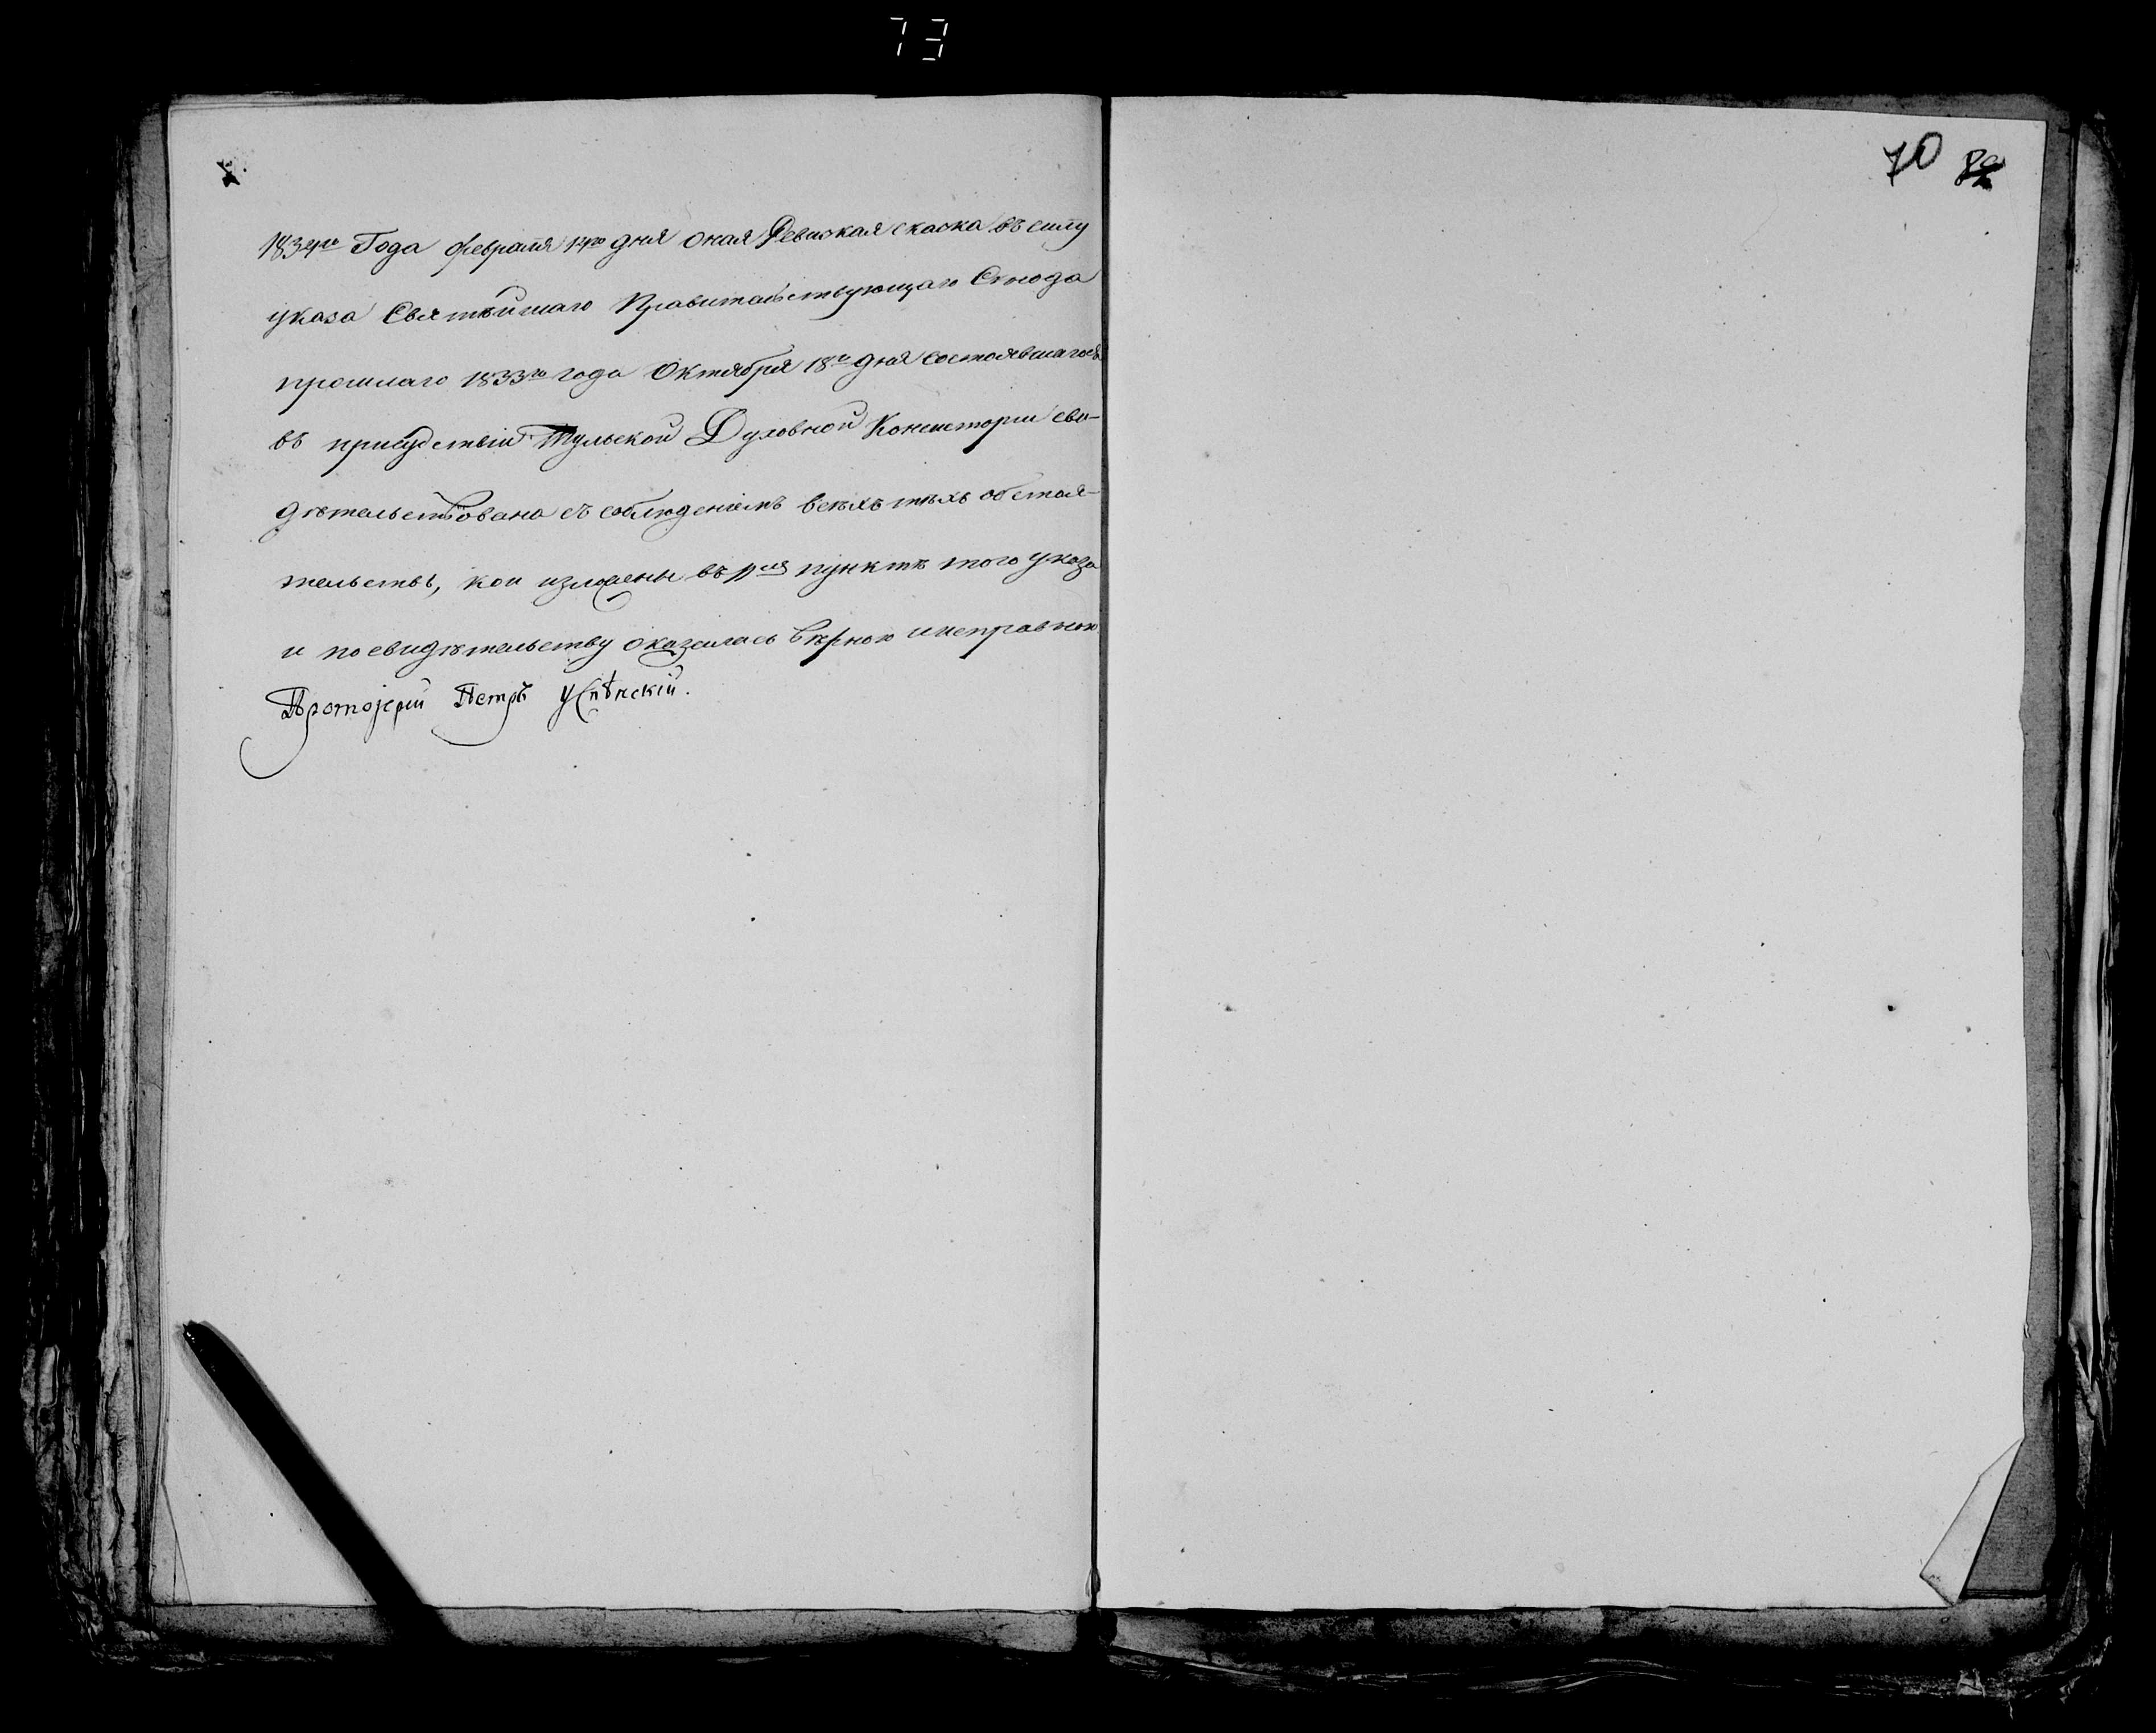 73
70
1834го Года февраля 14го дня оная Ревиская скаска въ силу
указа Святѣйшаго Правительствующаго Сѵнода
прошлаго 1833го года Октября 18го дня состоявшагося
въ присудствіи Тульской Духовной Консисторіи сви-
дѣтельствована съ соблюденіемъ всѣхъ тѣхъ обстоя-
тельствъ, кои изложены въ пунктѣ того указа
и по свидѣтельству оказалась вѣрною и исправною
Протоіерей Петръ Успѣнскій.